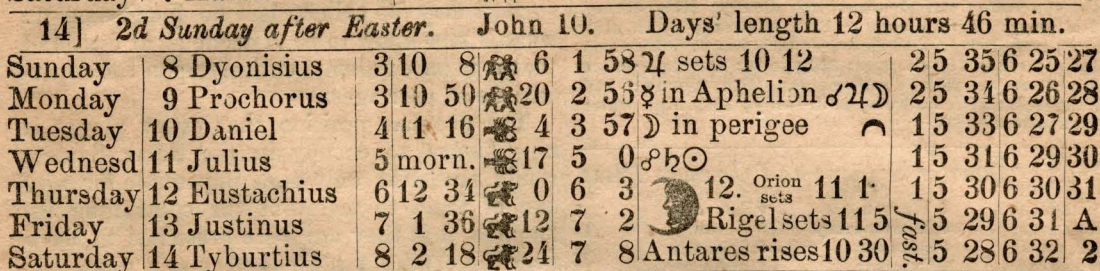 14] 2d Sunday after Easter. John 10. Days' length 12 hours 46 min.
Sunday 8 Dyonisius 3 10 8 6 1 58 ♃ sets 10 12 2 5 35 6 25 27
Monday 9 Prochorus 3 10 50 20 2 56 ☿ in Aphelion ☌♃☽ 2 5 34 6 26 28
Tuesday 10 Daniel 4 11 16 4 3 57 ☽ in perigee 1 5 33 6 27 29
Wednesd 11 Julius 5 morn. 17 5 0 ☍♄☉ 1 5 31 6 29 30
Thursday 12 Eustachius 6 12 34 0 6 3 12. Orion sets 11 1 1 5 30 6 30 31
Friday 13 Justinus 7 1 36 12 7 2 Rigel sets 11 5 fast. 5 29 6 31 A
Saturday 14 Tyburtius 8 2 18 24 7 8 Antares rises 10 30 5 28 6 32 2